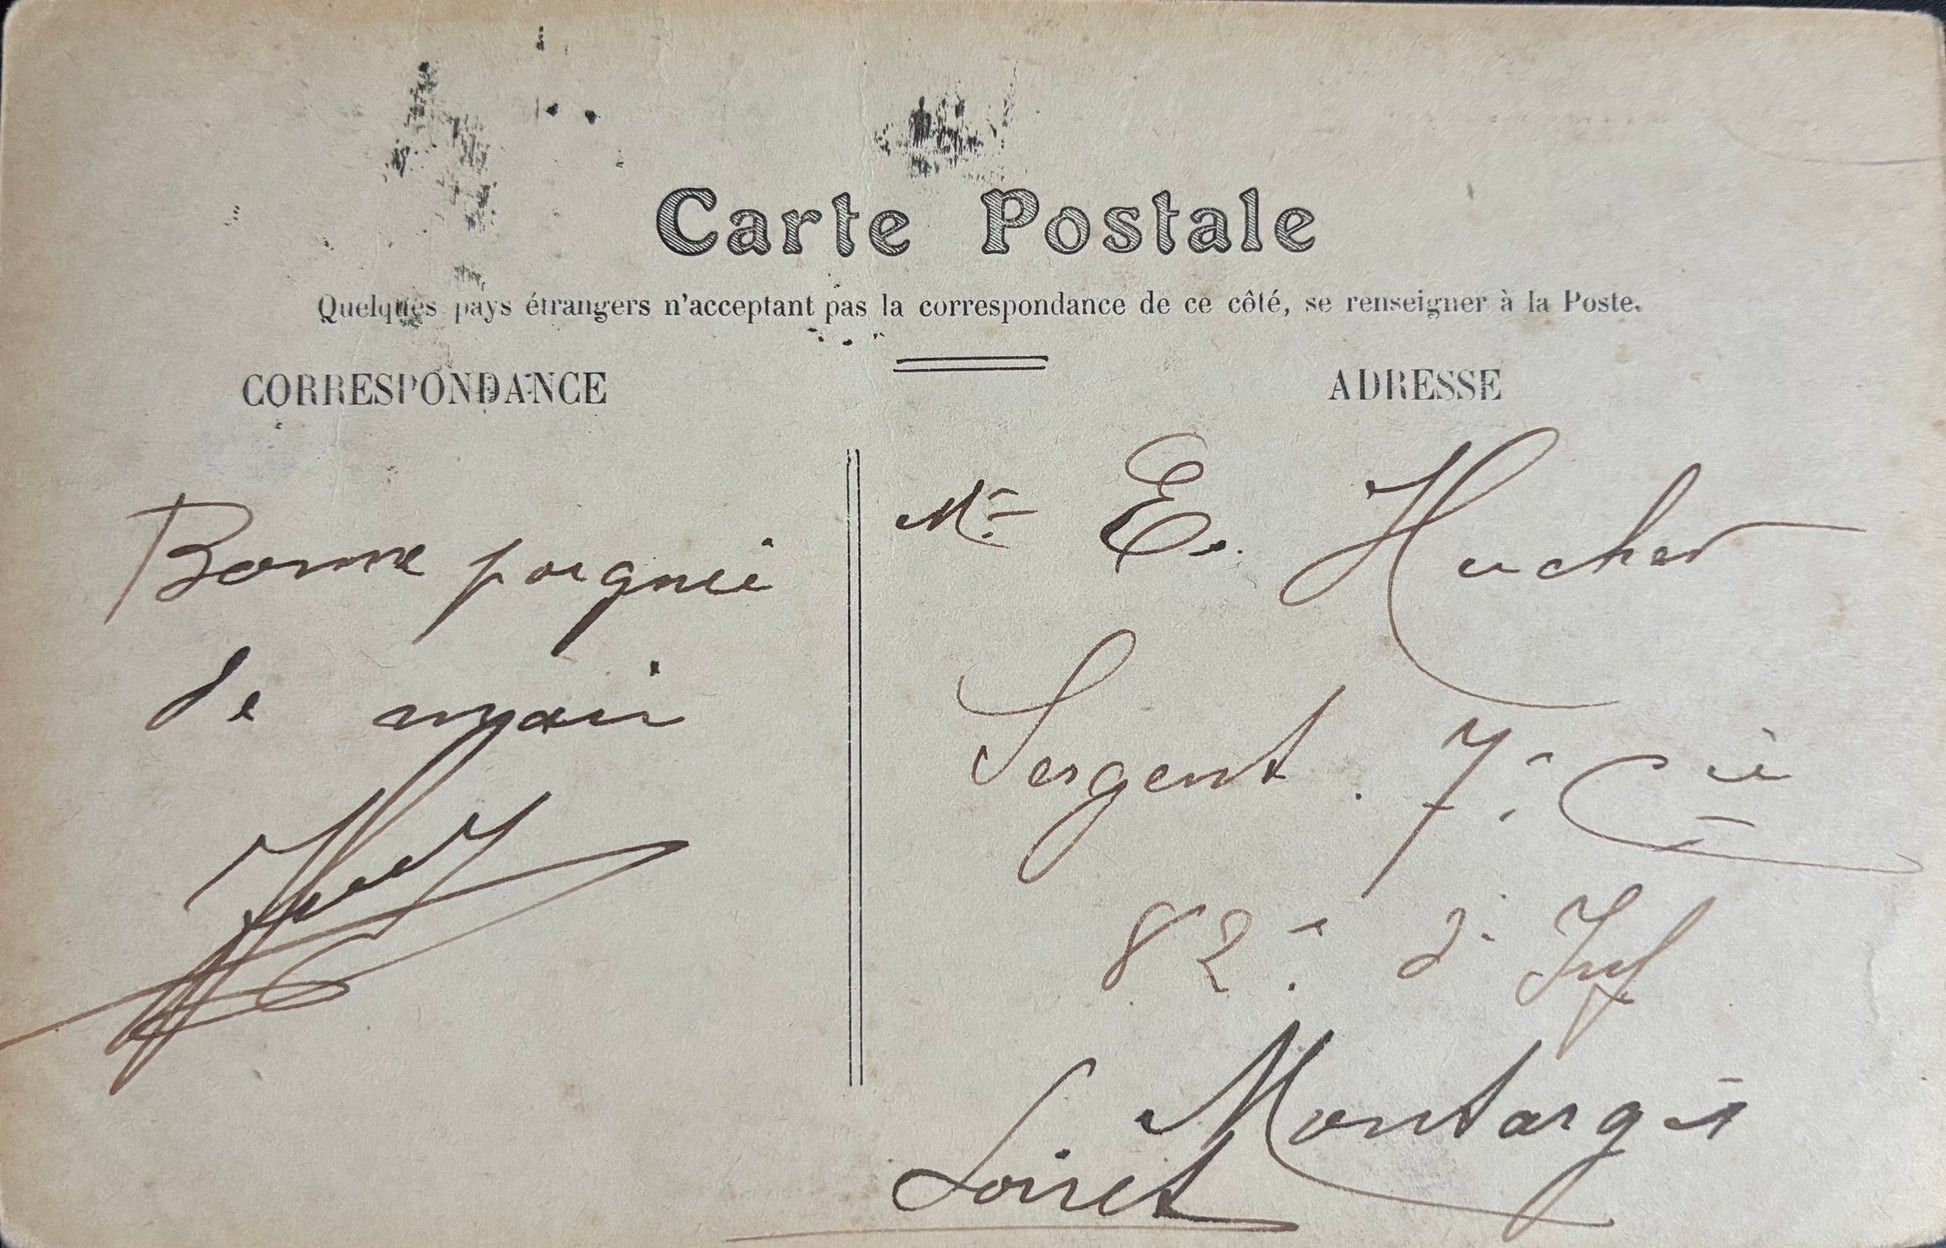 Carte Postale
Quelques pays étrangers n'acceptant pas la correspondance de ce côté, se renseigner à la Poste.
CORRESPONDANCE
Bonne poignée
de main
ADRESSE
Mr E. Hucher
Sergent. 7e Cie
82e d'Inf
Montargis
Loiret